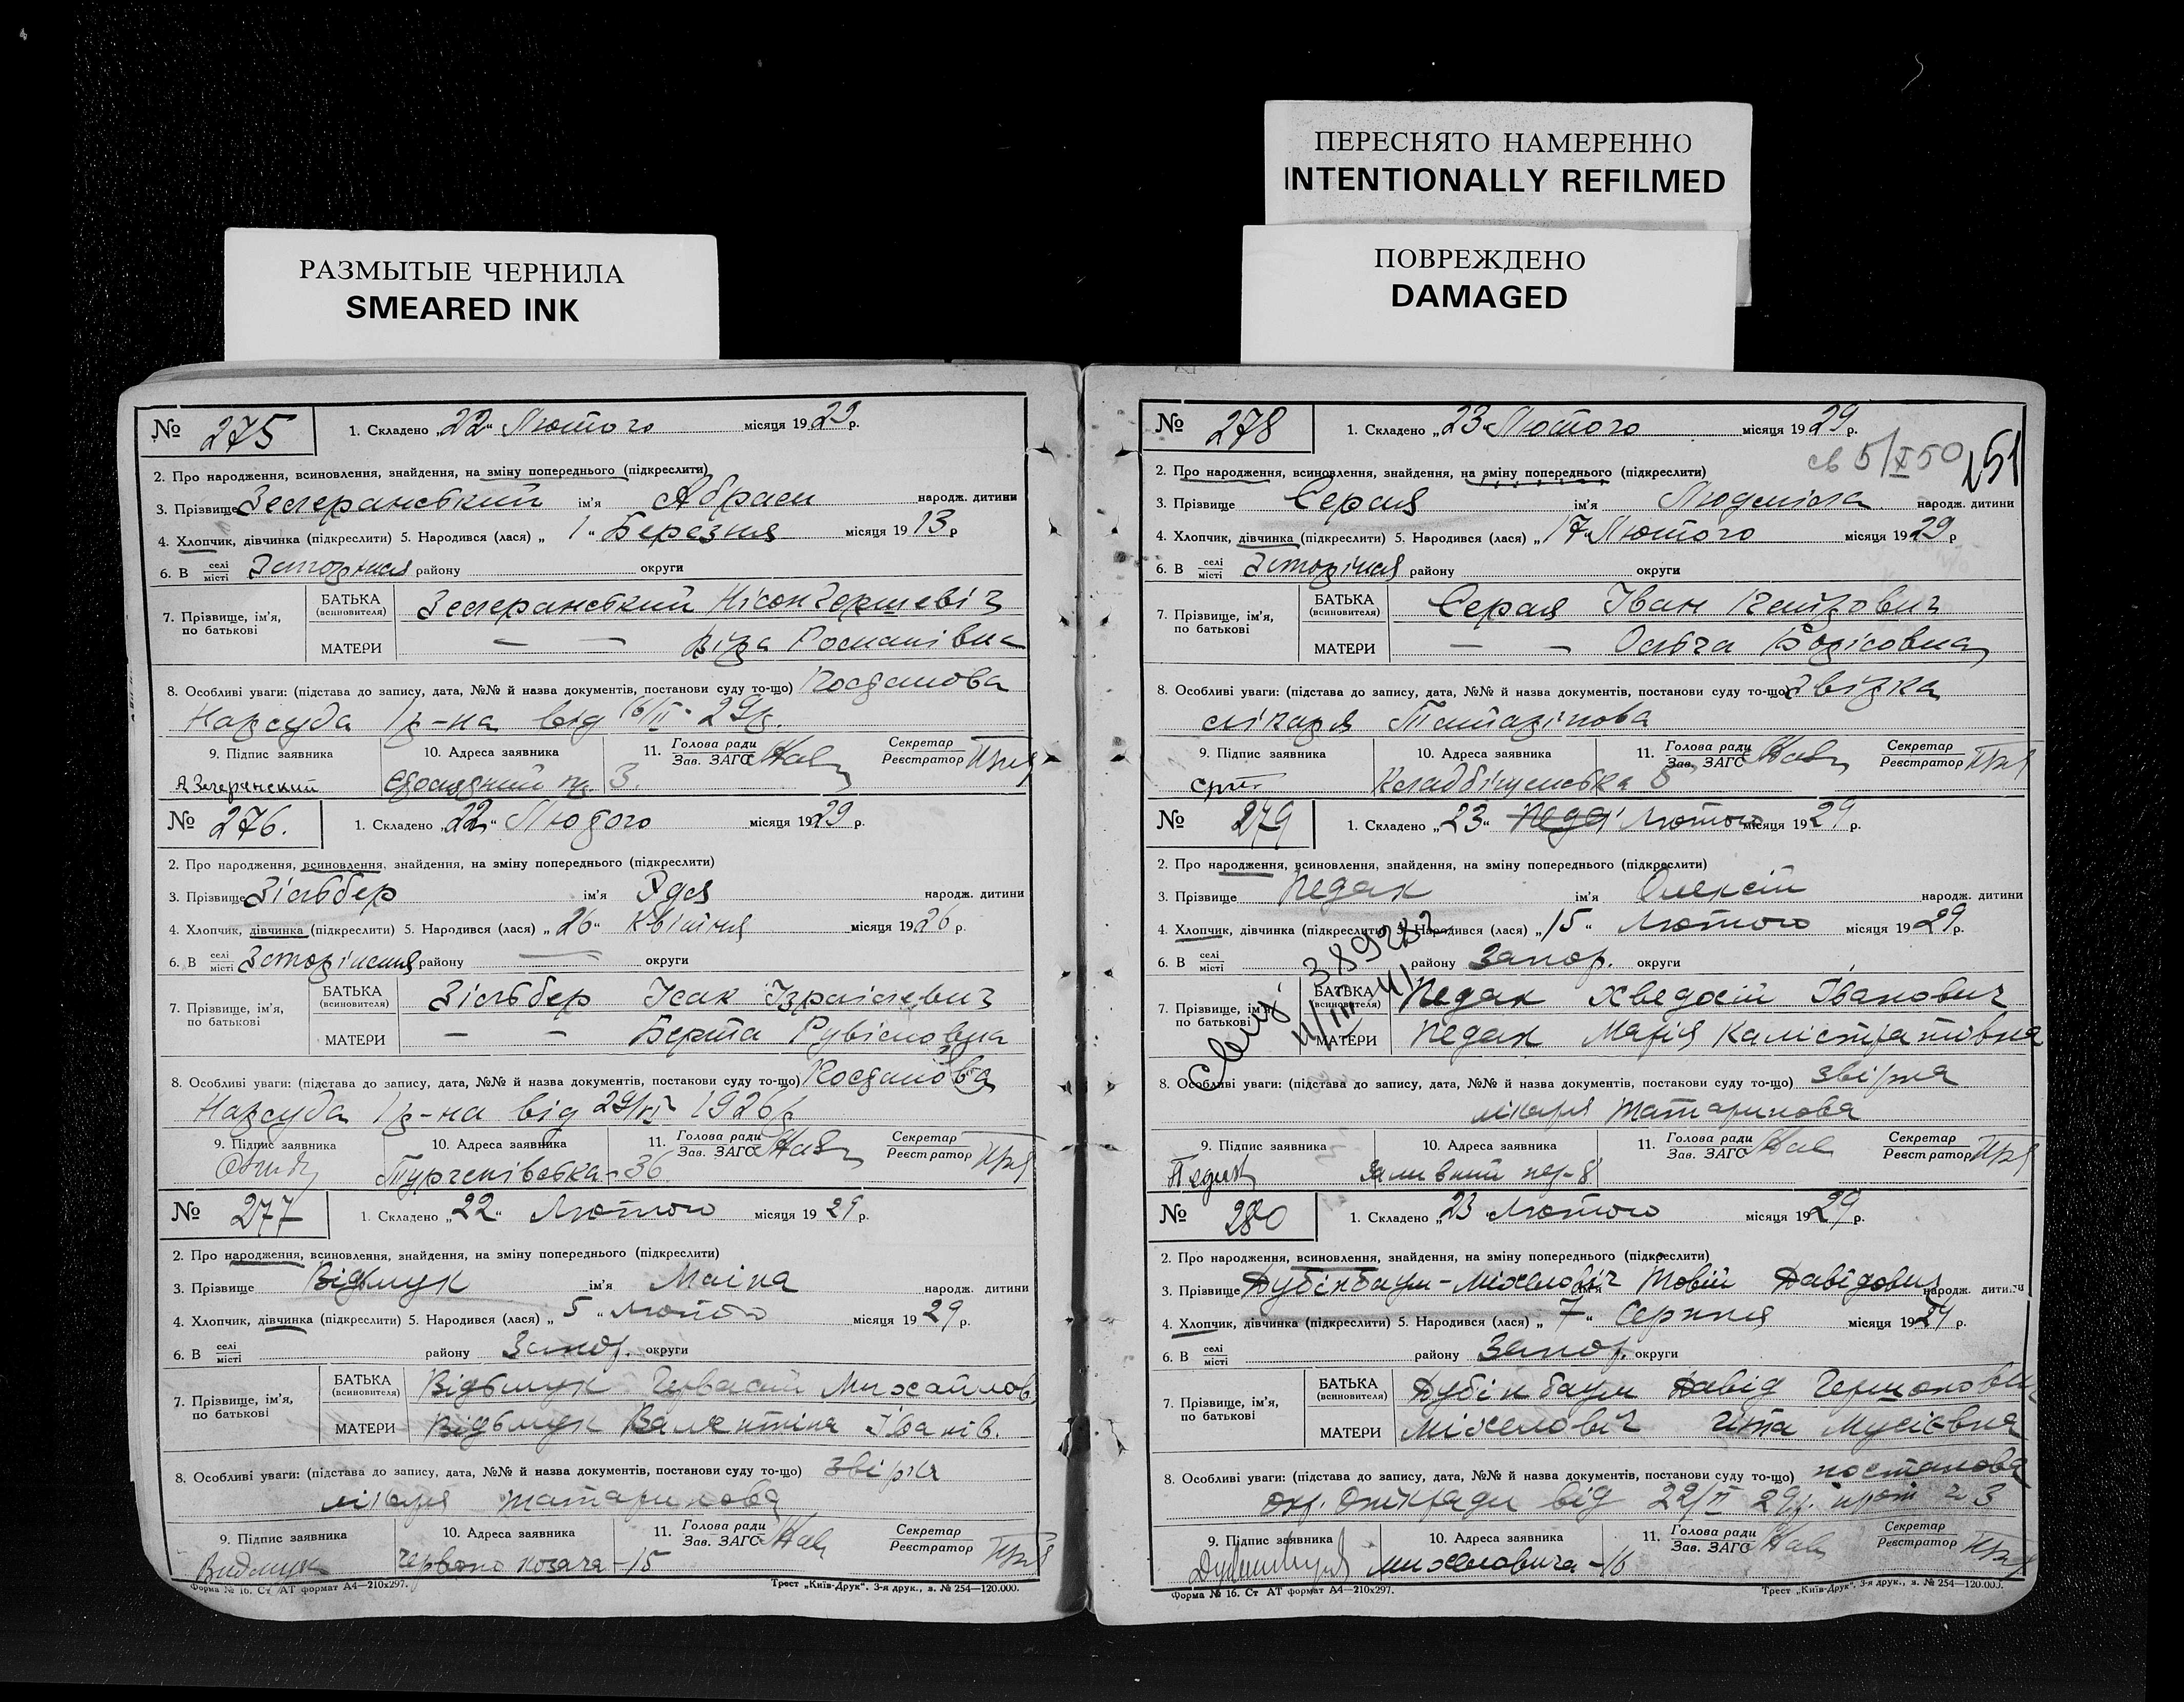 ПЕРЕСНЯТО НАМЕРЕННО
INTENTIONALLY REFILMED
РАЗМЫТЫЕ ЧЕРНИЛА
SMEARED INK
ПОВРЕЖДЕНО
DAMAGED
№ 275 1. Складено „22“ Лютого місяця 1929 р.
2. Про народження, всиновлення, знайдення, на зміну попереднього (підкреслити)
3. Прізвище ім'я Абрам народж. дитини
4. Хлопчик, дівчинка (підкреслити) 5. Народився (лася) „1“ Березня місяця 1913 р
6. В селі місті району округи
7. Прізвище, ім'я, по батькові
БАТЬКА (всиновителя)
МАТЕРИ — — Віра Романівна
8. Особливі уваги: (підстава до запису, дата, №№ й назва документів, постанови суду то-що) Постанова
Нарсуда 1 р-на від 16/II - 29р.
9. Підпис заявника 10. Адреса заявника 11. Голова ради Зав. ЗАГС Секретар Реєстратор
3.
№ 276. 1. Складено „22“ Лютого місяця 1929 р.
2. Про народження, всиновлення, знайдення, на зміну попереднього (підкреслити)
3. Прізвище Зільбер ім'я народж. дитини
4. Хлопчик, дівчинка (підкреслити) 5. Народився (лася) „26“ Квітня місяця 1926 р.
6. В селі місті району округи
7. Прізвище, ім'я, по батькові
БАТЬКА (всиновителя) Зільбер Ісак Ізраілевич
МАТЕРИ — — Берта Рувімовна
8. Особливі уваги: (підстава до запису, дата, №№ й назва документів, постанови суду то-що) Постанова
Нарсуда 1 р-на від 1926 р
9. Підпис заявника 10. Адреса заявника 11. Голова ради Зав. ЗАГС Секретар Реєстратор
Тургенівська - 36
№ 277 1. Складено „22“ Лютого місяця 1929 р.
2. Про народження, всиновлення, знайдення, на зміну попереднього (підкреслити)
3. Прізвище Відьмук ім'я народж. дитини
4. Хлопчик, дівчинка (підкреслити) 5. Народився (лася) „5“ Лютого місяця 1929 р.
6. В селі місті району Запор. округи
7. Прізвище, ім'я, по батькові
БАТЬКА (всиновителя) Відьмук Гервасій Михайлов.
МАТЕРИ Відьмук Валентина Іванів.
8. Особливі уваги: (підстава до запису, дата, №№ й назва документів, постанови суду то-що) звірка
лікаря Татаринова
9. Підпис заявника 10. Адреса заявника 11. Голова ради Зав. ЗАГС Секретар Реєстратор
Видмук Червоно козача - 15
Форма № 16. Ст АТ формат А4—210x297. Трест „Київ-Друк“. 3-я друк., з. № 254—120.000.
№ 278 1. Складено „23“ Лютого місяця 1929 р.
св 5/X 50 251
2. Про народження, всиновлення, знайдення, на зміну попереднього (підкреслити)
3. Прізвище Серая ім'я Людміла народж. дитини
4. Хлопчик, дівчинка (підкреслити) 5. Народився (лася) „17“ Лютого місяця 1929 р
6. В селі місті району округи
7. Прізвище, ім'я, по батькові
БАТЬКА (всиновителя) Серая Іван
МАТЕРИ — — Ольга Борісовна
8. Особливі уваги: (підстава до запису, дата, №№ й назва документів, постанови суду то-що) Звірка
лікаря Татарінова
9. Підпис заявника 10. Адреса заявника 11. Голова ради Зав. ЗАГС Секретар Реєстратор
Кладбіщенська
№ 279 1. Складено „23“ Лютого місяця 1929 р.
2. Про народження, всиновлення, знайдення, на зміну попереднього (підкреслити)
3. Прізвище Педах ім'я Олексій народж. дитини
4. Хлопчик, дівчинка (підкреслити) 5. Народився (лася) „15“ Лютого місяця 1929 р.
6. В селі місті району Запор. округи
7. Прізвище, ім'я, по батькові
БАТЬКА (всиновителя) Педах Хведосій Іванович
МАТЕРИ Педах Марія Калістратівна
8. Особливі уваги: (підстава до запису, дата, №№ й назва документів, постанови суду то-що) звірка
лікаря Татаринова
9. Підпис заявника 10. Адреса заявника 11. Голова ради Зав. ЗАГС Секретар Реєстратор
№ 280 1. Складено „23“ Лютого місяця 1929 р.
2. Про народження, всиновлення, знайдення, на зміну попереднього (підкреслити)
3. Прізвище Дубінбаум-Міхелович ім'я Товій Давідович народж. дитини
4. Хлопчик, дівчинка (підкреслити) 5. Народився (лася) „7“ Серпня місяця 19 р.
6. В селі місті району Запор. округи
7. Прізвище, ім'я, по батькові
БАТЬКА (всиновителя) Дубінбаум Давід Гершонович
МАТЕРИ Міхелович Гита Мусіївна
8. Особливі уваги: (підстава до запису, дата, №№ й назва документів, постанови суду то-що) постанова
окр. Опікради від 22/II 29р. прот ч 3
9. Підпис заявника 10. Адреса заявника 11. Голова ради Зав. ЗАГС Секретар Реєстратор
Михеловича - 16
Форма № 16. Ст АТ формат А4—210x297. Трест „Київ-Друк“. 3-я друк., з. № 254—120.000.